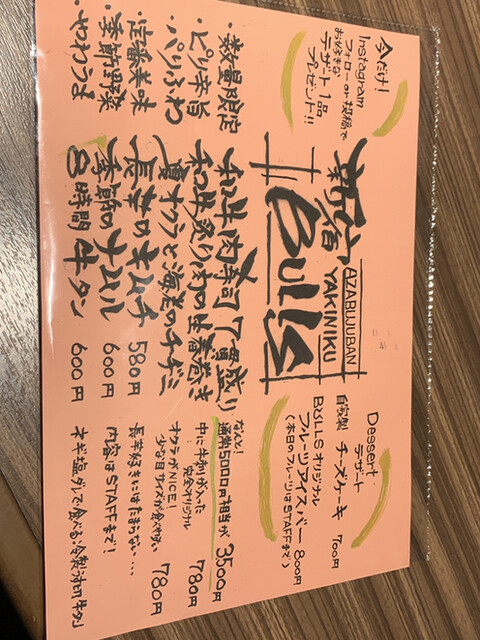 今だけ!
Instagram
フォローor投稿で
お好きな
デザート1品
プレゼント!!
新宿
AZABUJUBAN
YAKINIKU
Bulls
Dessert
デザート
自家製 チーズケーキ 700円
BULLSオリジナル
フルーツアイスバー 800円
(本日のフルーツはSTAFFまで)
・数量限定 和牛肉寿司 7貫盛り なんと! 通常5000円相当が 3500円
・ピリ辛旨 和牛炙り肉の生春巻き 中に牛刺が入った 完全オリジナル 780円
・パリふわ 夏オクラと海老のチヂミ オクラがNICE! 少な目サイズが食べやすい 780円
・定番美味 長芋のキムチ 580円 長芋好きにはたまらない…
・季節野菜 季節のナムル 600円 内容はSTAFFまで!
・やわうま 8時間牛タン 600円 ネギ塩ダレで食べる冷製 牛タン